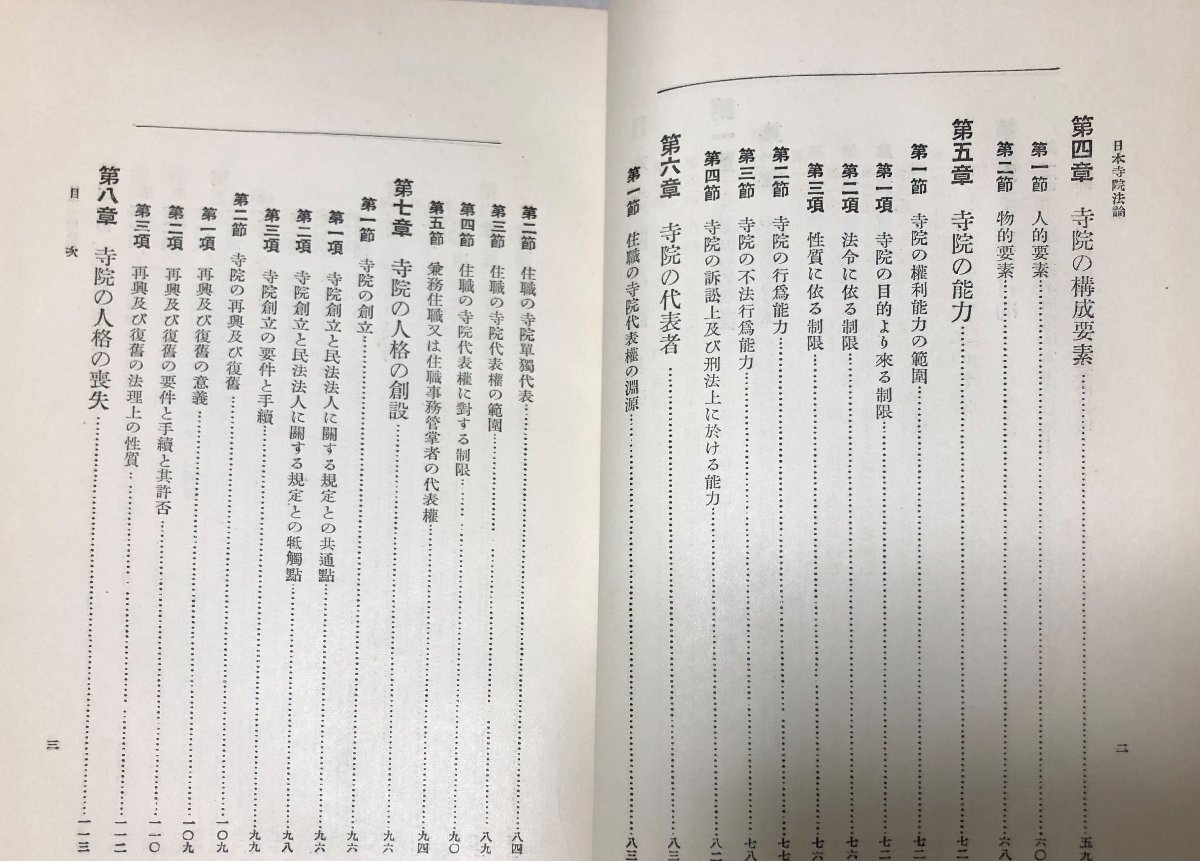 日本寺院法論
二
第四章 寺院の構成要素……五九
第一節 人的要素……六〇
第二節 物的要素……六八
第五章 寺院の能力……七二
第一節 寺院の權利能力の範圍……七二
第一項 寺院の目的より來る制限……七二
第二項 法令に依る制限……七六
第三項 性質に依る制限……七六
第二節 寺院の行爲能力……七七
第三節 寺院の不法行爲能力……七八
第四節 寺院の訴訟上及び刑法上に於ける能力……八二
第六章 寺院の代表者……八三
第一節 住職の寺院代表權の淵源……八三
第二節 住職の寺院單獨代表……八四
第三節 住職の寺院代表權の範圍……八九
第四節 住職の寺院代表權に對する制限……九〇
第五節 兼務住職又は住職事務管掌者の代表權……九四
第七章 寺院の人格の創設……九六
第一節 寺院の創立……九六
第一項 寺院創立と民法法人に關する規定との共通點……九六
第二項 寺院創立と民法法人に關する規定との牴觸點……九八
第三項 寺院創立の要件と手續……九九
第二節 寺院の再興及び復舊……一〇九
第一項 再興及び復舊の意義……一〇九
第二項 再興及び復舊の要件と手續と其許否……一一〇
第三項 再興及び復舊の法理上の性質……一一二
第八章 寺院の人格の喪失……一一三
目次
三